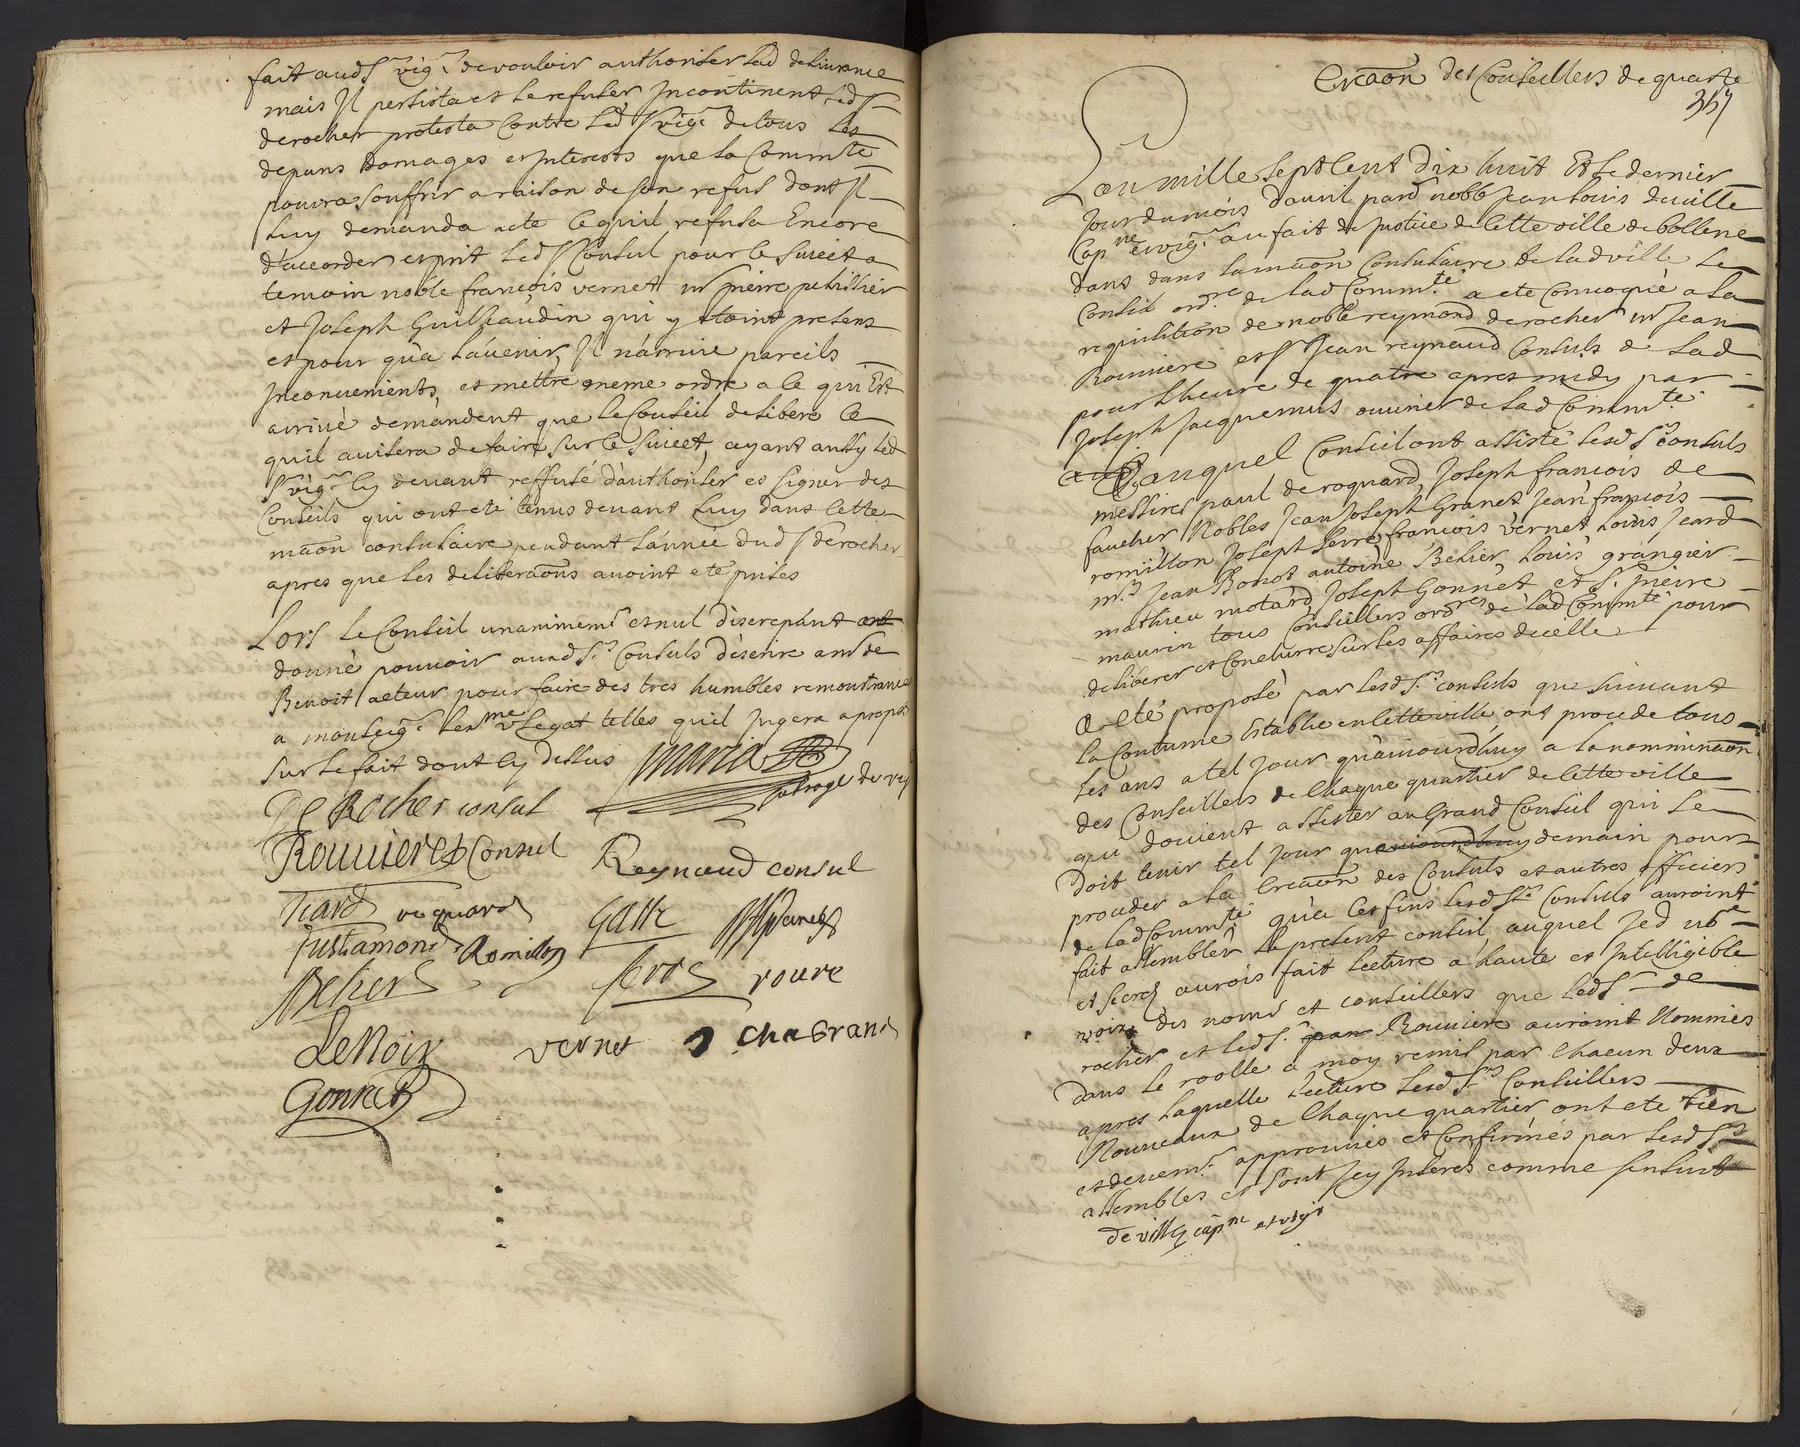 fait aud Sr vigr de vouloir authoriser lad delivrance
mais Il persista et le refuser Incontinent led Sr
derocher protesta Contre led Sr vigr de tous les
depans Domages et Interests que la Commte
pourra souffrir a raison de son refus dont Il
luy demanda acte ce quil refusa Encore
d'accorder et prit led Sr Consul pour le suiect a
temoin noble francois vernet mr pierre pelissier
et Joseph Guilhaudin qui y etoint presens
et pour qu'a l'avenir, Il n'arrive pareils
Inconvenients, et mettre meme ordre a ce qui Est
arrivé demandent que le Conseil delibere ce
quil avisera de faire sur le suiect, ayant aussy led
Sr vigr cy devant reffusé d'authoriser et signer des
Conseils qui ont eté tenus devant luy dans cette
maon consulaire pendant l'année dud Sr derocher
apres que les deliberaons avoint eté prises
Lors le Conseil unanimemt et nul discrepant ont
donné pouvoir ausd Srs Consuls d'escrire a mr de
Benoit acteur pour faire des tres humbles remontrances
a monseigr lexme v legat telles quil Jugera a propos
sur le fait dont cy dessus
De Rocher consul
Rouviere Consul
Reynaud consul
Jeard roquard
Justamond Romillon
Behier
serre roure
LeNoir vernet Chabrand
Gonnet
Creaon des Conseillers de quarte
357
L'an mille sept Cent Dix huit Et le dernier
Jour du mois d'avril pard noble Jean louis de ville
Capne et vigr au fait de Justice de Cette ville de bollene
dans dans la maon Consulaire de lad ville Le
Conseil ordre de lad Commte a eté Convoqué a la
requisition de noble reymond derocher mr Jean
Rouviere et Sr Jean reynaud Consuls de lad
pour l'heure de quatre apres midy par
Joseph Jacquemus ouvrier de lad Commte
auquel Conseil ont assisté lesd Srs Consuls
messires paul de roquard, Joseph francois de
faucher Nobles Jean Joseph Granet Jean francois
romillon Joseph serre francois vernet louis Jeard
mrs Jean Bonot antoine Behier louis grangier
mathieu motard Joseph Gonnet et Sr pierre
maurin tous Conseillers ordres de lad Commte pour
deliberer et Conclurre sur les affaires dicelle
A eté proposé par lesd Srs consuls que suivant
la Coutume establie en cette ville ont procede tous
les ans a tel Jour qu'aujourdhuy a la nominaon
des Conseillers de Chaque quartier de Cette ville
qui doivent assister au Grand Conseil qui se
Doit tenir tel Jour que aujourdhuy demain pour
proceder a la Creaon des Consuls et autres officiers
de lad Commte qu'a ces fins lesd Srs Consuls auroint
fait assembler le present conseil auquel Je d nore
et secre aurois fait lecture a haute et Intelligible
voix des noms et conseillers que led Sr de
rocher et led Sr Rouviere auroint Nommés
Dans le roolle a moy remis par Chacun deux
apres laquelle lecture lesd Srs Conseillers
Nouveaux de Chaque quartier ont eté bien
et deuemt approuvés et Confirmés par lesd Srs
assembles et sont Icy Inseres comme sensuit
de ville capne et vigr